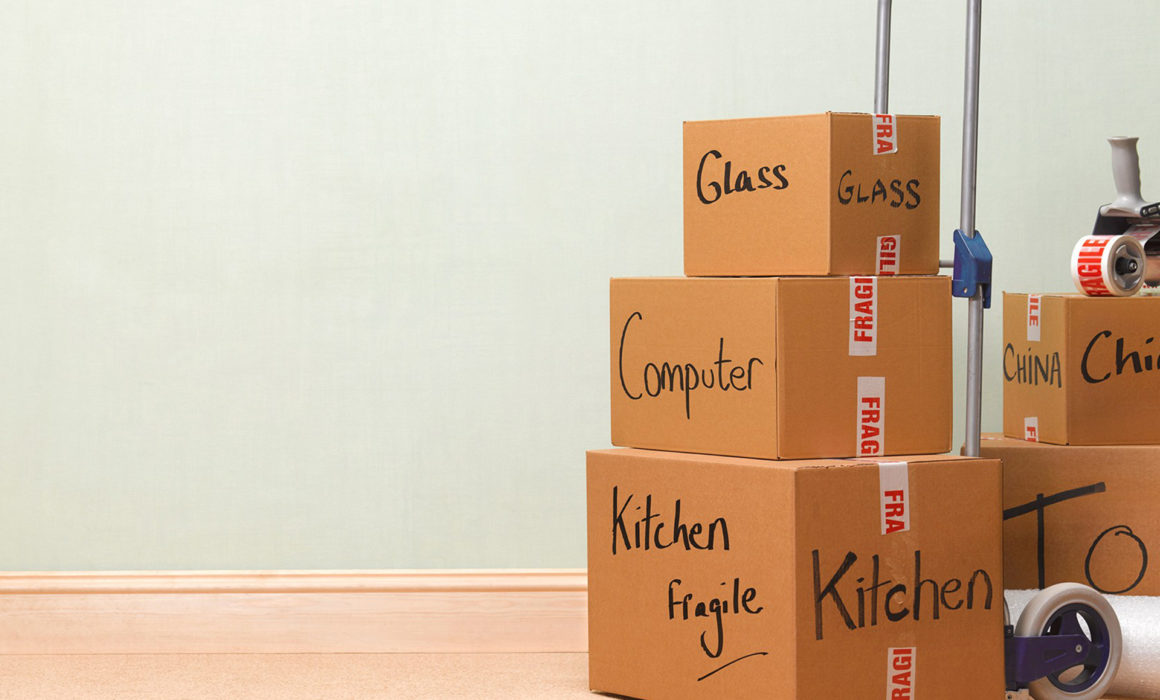 Glass
GLASS
FRA
GILE
Computer
FRAGI
FRAG
Kitchen
Fragile
Kitchen
FRA
RAGI
AGILE
ILE
CHINA
Chi
F
To